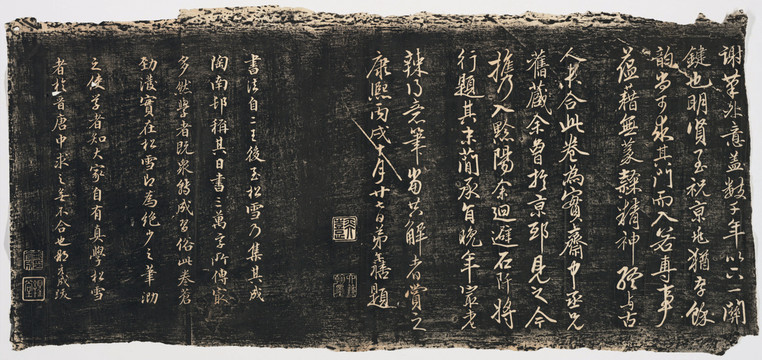 謝華외意蓋數千年以六一關
鍵也明賢至祝京兆猶存餘
韵當可求其門而入若專事
蘊藉無蒙隸精神經與古
人未合此卷為實齋中丞兄
舊藏余曾於京邸見之今
攜入黔陽余迴避石阡將
行題其末簡承旨晚年最老
辣得意筆當共解者賞之
康熙丙戌七月廿七日弟禧題
書法自二王後至松雪乃集其成
陶南邨稱其日書三萬字所傳最
多然學者既眾能成習俗此卷蒼
勁濃實在松雪即為絕少之筆沏
之使学者知大家自有真學松雪
者於晉唐中求之無不合也